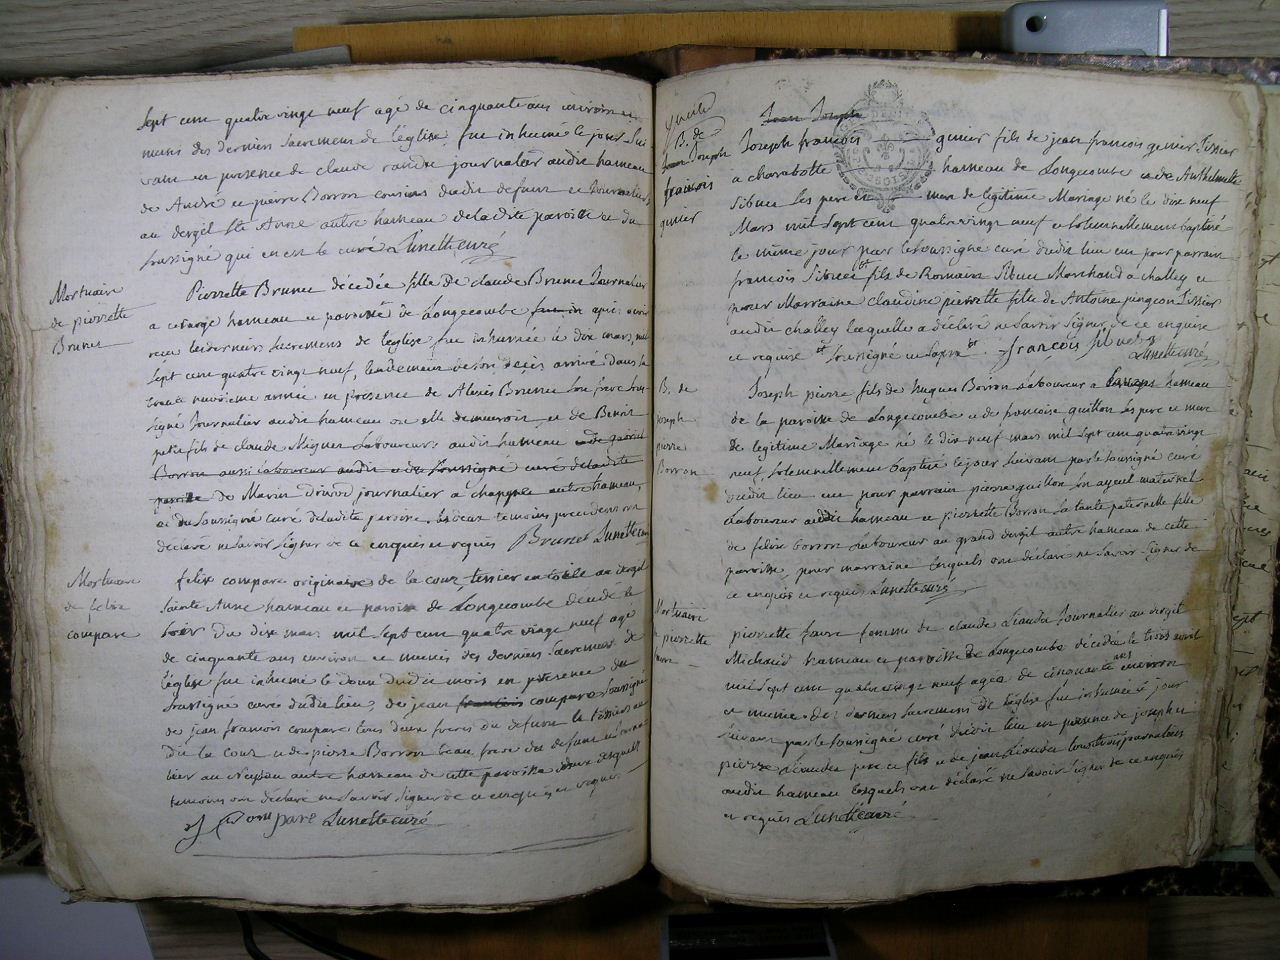 Sept cent quatre vingt neuf agé de cinquante ans environ et
munis des derniers sacremens de l'église, fut inhumé le jour Sui
vant en présence de claude journalier audit hameau
de André et pierre Borron cousins dudit defunt et journaliers
au dergil Ste Anne autre hameau de la dite paroisse et du
soussigné qui en est le curé Lunette curé
Mortuaire
de pierrette
Brunet
Pierrette Brunet décedée fille de claude Brunet Journalier
a hameau et paroisse de Longecombe apres avoir
recu les derniers sacremens de l'église fut inhumée le dix mars mil
Sept cent quatre vingt neuf, lendemain de son deces arrivé dans la
année en présence de Alexis Brunet son frere Sous
signé Journalier audit hameau ou elle demeuroit, et de Benoit
petit fils de claude Laboureurs audit hameau
Borron aussi laboureur audit et du Soussigné curé de la dite
paroisse de Marin journalier a autre hameau,
et du Soussigné curé de la dite paroisse, les deux temoins precedens ont
déclaré ne savoir signer de ce enquis et requis Brunet Lunette curé
Mortuaire
de felix
compare
felix compare originaire de la cour, tessier en toile au dergil
Sainte Anne hameau et paroisse de Longecombe décedé le
du dix mars mil sept cent quatre vingt neuf agé
de cinquante ans environ et munis des derniers sacremens de
l'église fut inhumé le douze dudit mois en présence du
soussigné curé dudit lieu, de jean francois compare soussigné
de jean francois compare tous deux freres du defunt
de la cour et de pierre Borron beau frere du defunt
au Neydan autre hameau de cette paroisse
temoins ont déclaré ne savoir signer de ce enquis et requis
J Compare Lunette curé
B. de
Jean Joseph
françois
ginier
Jean Joseph
Joseph françois ginier fils de jean francois ginier Tissier
a charabotte hameau de Longecombe et de Anthelmette
Sibuet Les pere et mere de legitime Mariage né le dix neuf
Mars mil Sept cent quatre vingt neuf et solemnellement baptisé
le même jour par le soussigné curé dudit lieu eut pour parrain
françois Sibuet fils de Romain Sibuet Marchand a challey et
pour Marraine claudine pierrette fille de Antoine pingeon Tissier
audit challey laquelle a déclaré ne savoir signer de ce enquise
et requise françois sibuet
Lunette curé
B. de
joseph
pierre
Borron
Joseph pierre fils de hugues Borron Laboureur a hameau
de la paroisse de Longecombe et de francoise guillon les pere et mere
de legitime Mariage né le dix neuf mars mil sept cent quatre vingt
neuf, solemnellement baptisé le jour suivant par le soussigné curé
dudit lieu eut pour parrain pierre guillon son ayeul maternel
Laboureur audit hameau et pierrette Borron sa tante paternelle fille
de felix borron Laboureur au grand dergil autre hameau de cette
paroisse, pour marraine lesquels ont déclaré ne savoir signer de
ce enquis et requis Lunette curé
Mortuaire
pierrette
favre
pierrette favre femme de claude Liauda Journalier au dergit
Michaud hameau et paroisse de Longecombe décédée le trois avril
mil sept cent quatre vingt neuf agée de cinquante ans environ
et munie des derniers sacremens de l'église fut inhumée le jour
suivant par le soussigné curé dudit lieu en présence de joseph et
pierre Liauda pere et fils et de jean Liauda tous trois journaliers
audit hameau lesquels ont déclaré ne savoir signer de ce enquis
et requis Lunette curé